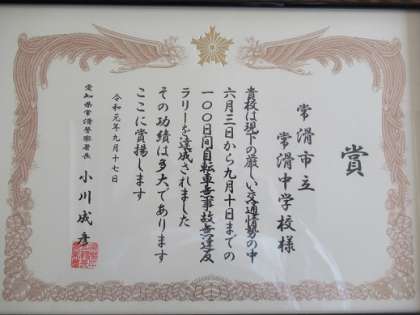 賞
常滑市立
常滑中学校様
貴校は現下の厳しい交通情勢の中
六月三日から九月十日までの
一〇〇日間自転車無事故無違反
ラリーを達成されました
その功績は多大であります
ここに賞揚します
令和元年九月十七日
愛知県常滑警察署長
小川成彦